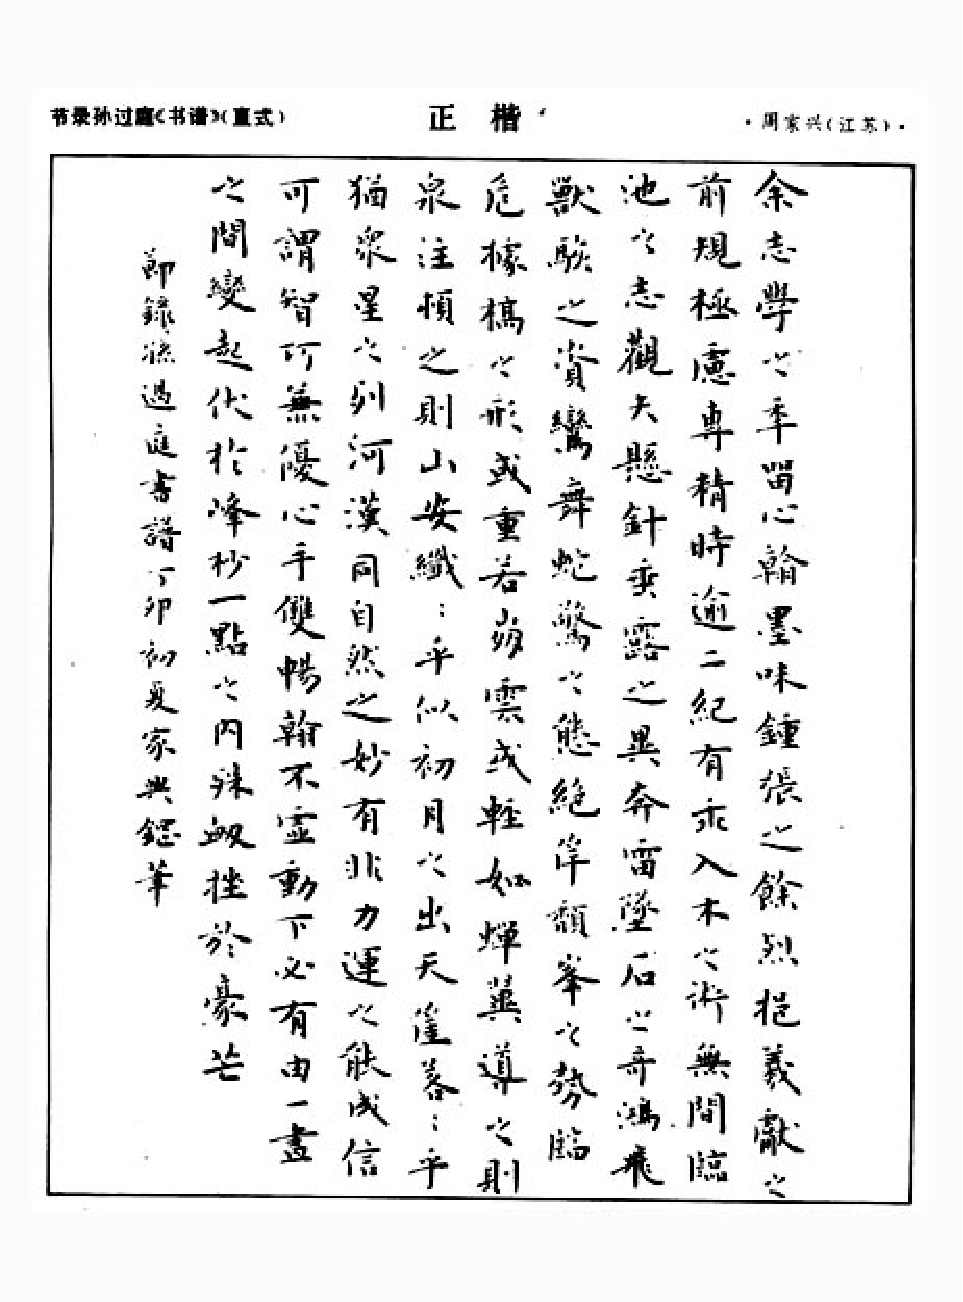 节录孙过庭《书谱》(直式)
正楷
·周家兴(江苏)·
余志學之年留心翰墨味鍾張之餘烈挹羲獻之
前規極慮專精時逾二紀有乖入木之術無間臨
池之志觀夫懸針垂露之異奔雷墜石之奇鴻飛
獸駭之資鸞舞蛇驚之態絕岸頹峯之勢臨
危據槁之形或重若崩雲或輕如蟬翼導之則
泉注頓之則山安纖:乎似初月之出天崖落:乎
猶衆星之列河漢同自然之妙有非力運之能成信
可謂智巧兼優心手雙暢翰不虛動下必有由一畫
之間變起伏於峰杪一點之内殊衂挫於豪芒
節錄孫過庭書譜丁卯初夏家興鋼筆